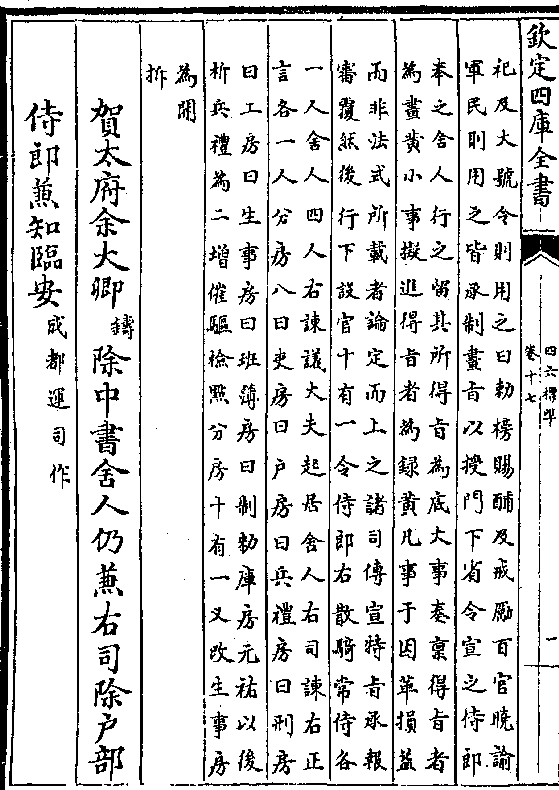 欽定四庫全書
四六標準
卷十七
一
祀及大號令則用之曰勅榜賜酺及戒勵百官曉諭
軍民則用之皆承制畫旨以授門下省令宣之侍郎
奉之舍人行之留其所得旨為底大事奏稟得旨者
為畫黃小事擬進得旨者為録黃凡事于因革損益
而非法式所載者論定而上之諸司傳宣特旨承報
審覆然後行下設官十有一令侍郎右散騎常侍各
一人舍人四人右諫議大夫起居舍人右司諫右正
言各一人分房八曰吏房曰戶房曰兵禮房曰刑房
曰工房曰生事房曰班簿房曰制勅庫房元祐以後
析兵禮為二增催驅檢點分房十有一又改生事房
為開
拆
賀太府余大卿鑄除中書舍人仍兼右司除戶部
侍郎兼知臨安成都運司作